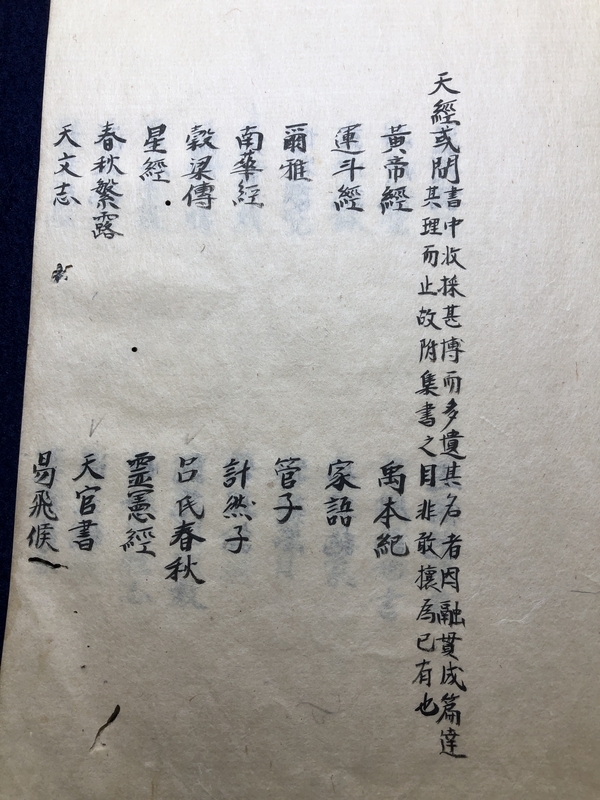 天經或問書中收採甚博而多遺其名者因融貫成篇達
其理而止故附集書之目非敢攘爲已有也
黃帝經 禹本紀
運斗經 家語
爾雅 管子
南華經 計然子
穀梁傳 呂氏春秋
星經 靈憲經
春秋繁露 天官書
天文志 易飛候